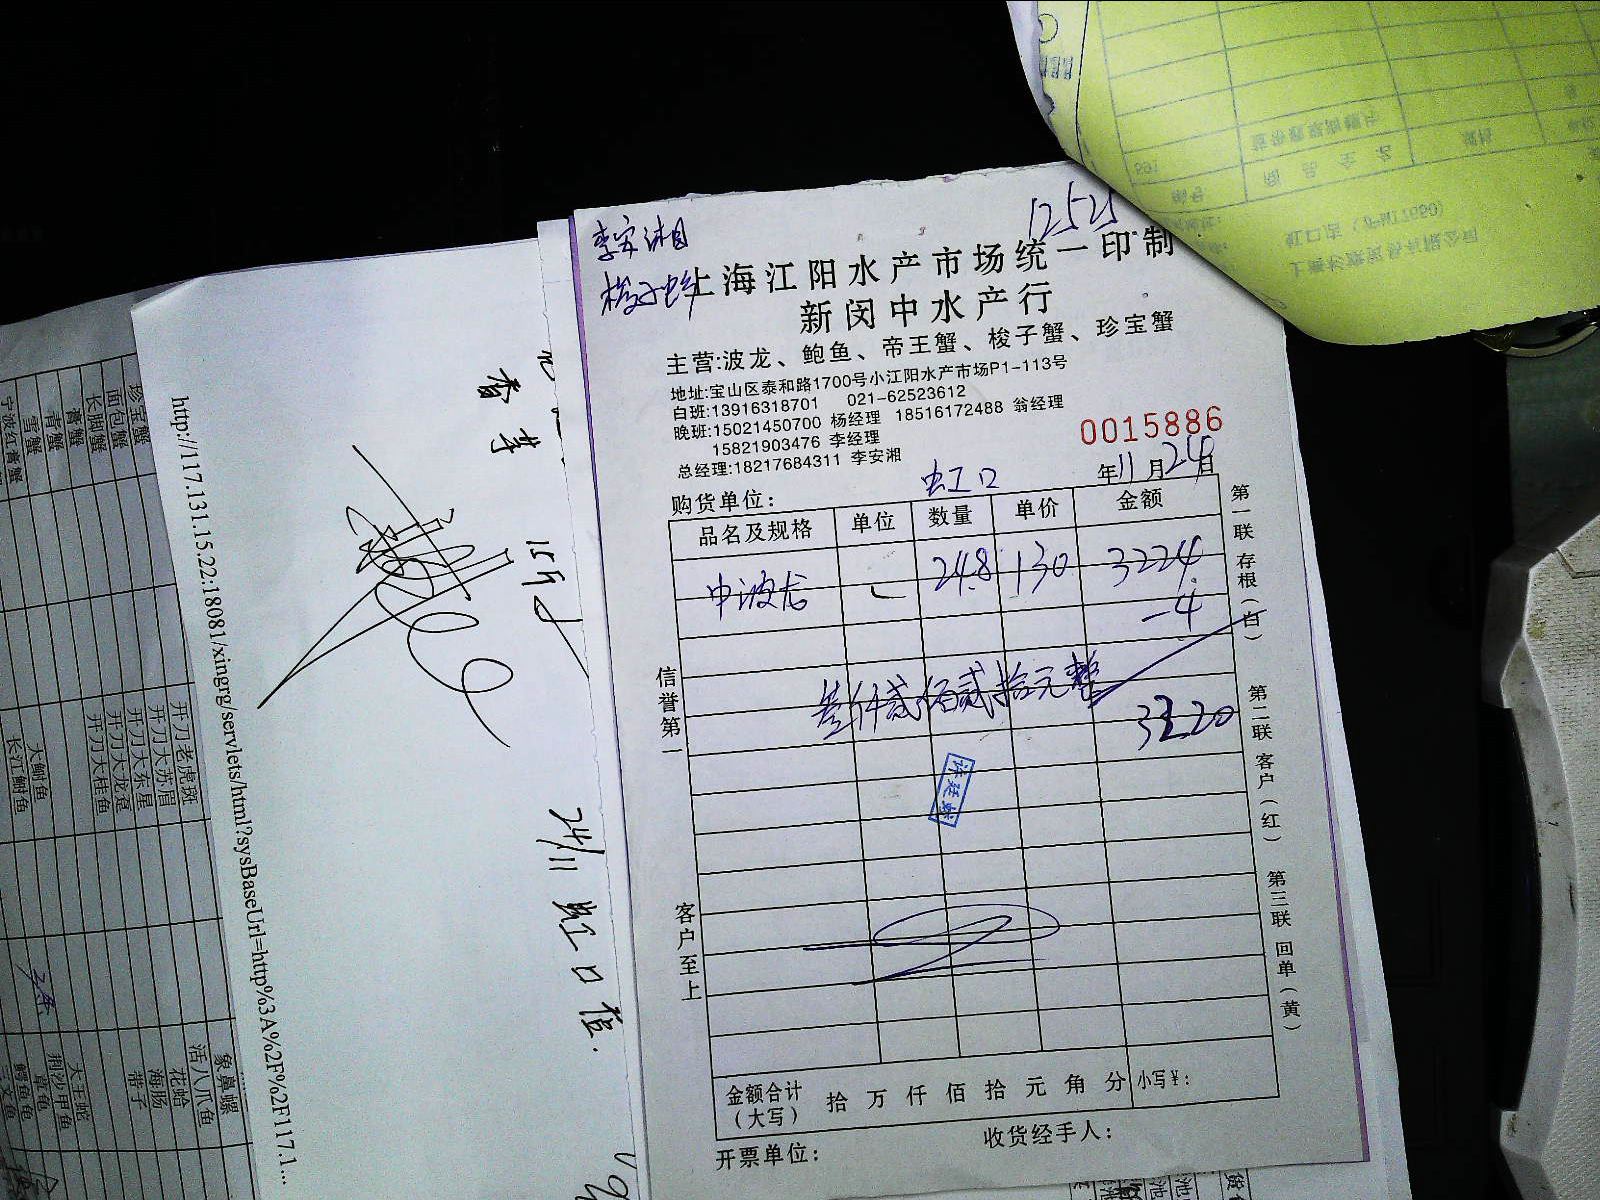 李安湘
梭子蟹
12525
上海江阳水产市场统一印制
新闵中水产行
主营:波龙、鲍鱼、帝王蟹、梭子蟹、珍宝蟹
地址:宝山区泰和路1700号小江阳水产市场P1-113号
白班:13916318701 021-62523612
晚班:15021450700 杨经理 18516172488 翁经理
15821903476 李经理
总经理:18217684311 李安湘
0015886
购货单位: 虹口 年11月24日
品名及规格 单位 数量 单价 金额
中波龙 24.8 130 3224
-4
叁仟贰佰贰拾元整
3220
信誉第一
客户至上
第一联 存根(白)
第二联 客户(红)
第三联 回单(黄)
金额合计(大写) 拾 万 仟 佰 拾 元 角 分 小写¥:
开票单位: 收货经手人:
http://117.131.15.22:18081/xingrg/servlets/html?sysBaseUrl=http%3A%2F%2F117.1...
15斤
24/11 虹口店.
珍宝蟹
面包蟹
长脚蟹
膏蟹
青蟹
雪蟹
宁波红膏蟹
开刀老虎斑
开刀大苏眉
开刀大东星
开刀大龙趸
开刀大桂鱼
大鲥鱼
长江鲥鱼
象鼻螺
活八爪鱼
花蛤
海肠
带子
大王蛇
荆沙甲鱼
草龟
鳄鱼龟
三文鱼
编号 商品全名 规格
虹口店